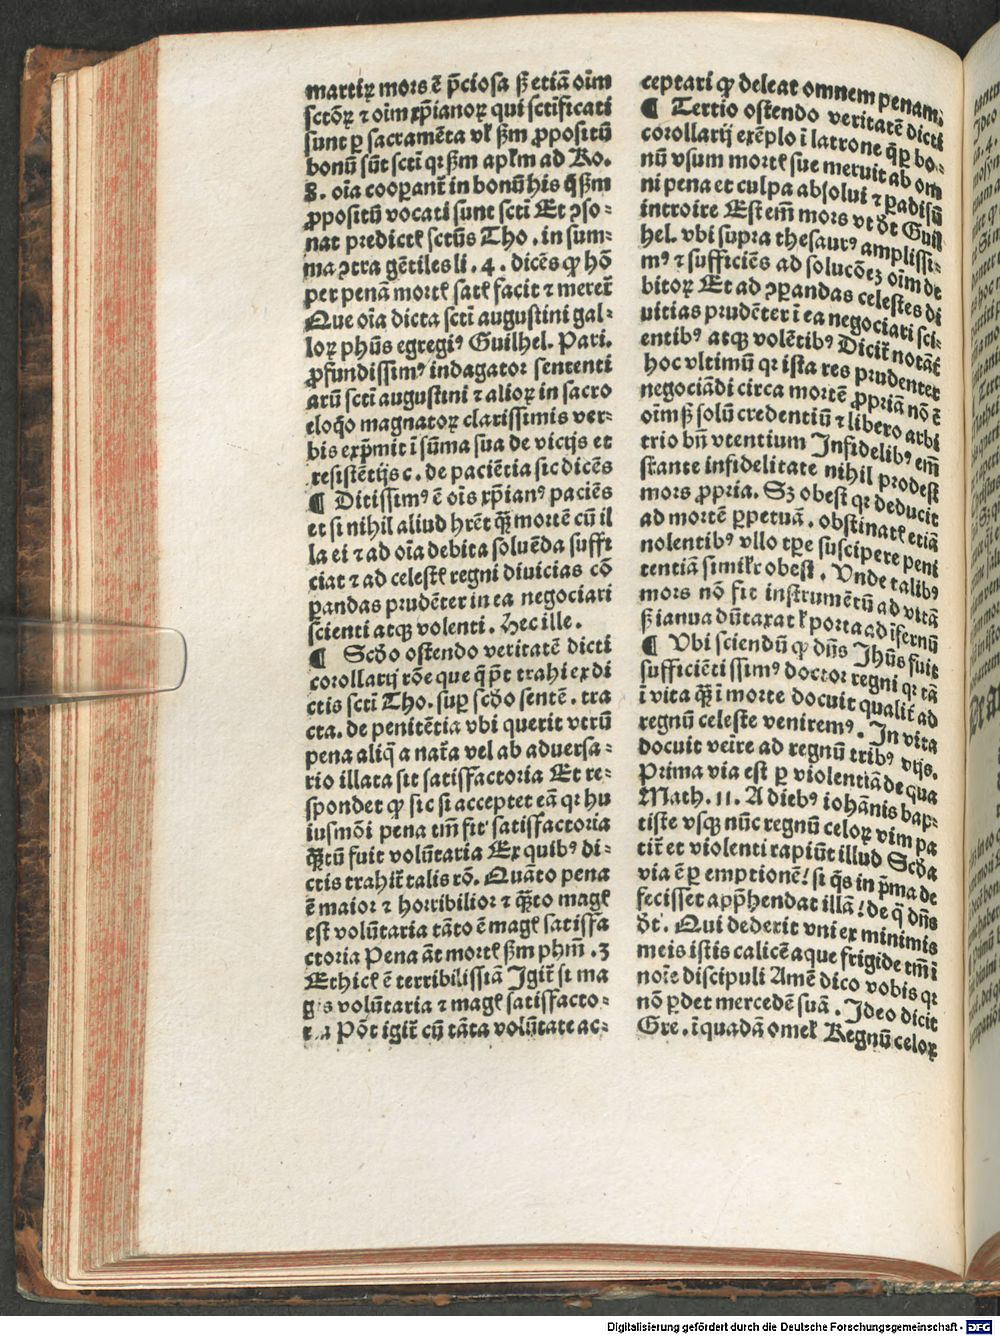 martiꝝ mors ē p̄ciosa sꝫ etiā oīm
sctōꝝ ⁊ oīm xp̄ianoꝝ qui sctificati
sunt ꝑ sacramēta vl̓ ẜm ꝓpositū
bonū sūt scti qꝛ ẜm apl̓m ad Ro.
8. oīa cooꝑant̄ in bonū his q̄ ẜm
ꝓpositū vocati sunt scti Et ꝯso⸗
nat predictꝭ sctūs Tho. in sum⸗
ma ꝯtra gētiles li. 4. dicēs ꝙ hō
per penā mortꝭ satꝭ facit ⁊ meret̄
Que oīa dicta scti augustini gal⸗
loꝝ phūs egregiꝰ Guilhel. Pari.
ꝓfundissimꝰ indagator sententi
arū scti augustini ⁊ alioꝝ in sacro
eloq̄o magnatoꝝ clarissimis ver⸗
bis exp̄mit ī sūma sua de vicijs et
resistētijs c. de paciētia sic dicēs
¶ Ditissimꝰ ē oīs xp̄ianꝰ paciēs
et si nihil aliud hrēt q̄ꝫ mortē cū il
la ei ⁊ ad oīa debita soluēda suffi
ciat ⁊ ad celestꝭ regni diuicias cō
ꝑandas prudēter in ea negociari
scienti atqꝫ volenti. Hec ille.
¶ Scd̓o ostendo veritatē dicti
corollarij rōe que q̄ p̄t trahi ex di
ctis scti Tho. suꝑ scd̓o sentē. tra
cta. de penitētia vbi querit vtrū
pena aliq̄ a nat̄a vel ab aduersa⸗
rio illata sit satisfactoria Et re⸗
spondet ꝙ sic si acceptet eā qꝛ hu
iusmōi pena tm̄ fit satisfactoria
q̄ꝫtū fuit volūtaria Ex quibꝰ di⸗
ctis trahit̄ talis rō. Quāto pena
ē maior ⁊ horribilior ⁊ q̄ꝫto magꝭ
est volūtaria tāto ē magꝭ satisfa
ctoria Pena āt mortꝭ ẜm phm̄. 3
Ethicꝭ ē terribilissiā Igit̄ si ma
gis volūtaria ⁊ magꝭ satisfacto⸗
ria Pōt igit̄ cū tāta volūtate ac⸗
ceptari ꝙ deleat omnem penam.
¶ Tertio ostendo veritatē dicti
corollarij exēplo ī latrone q̄ ꝑ bo⸗
nū vsum mortꝭ sue meruit ab om
ni pena et culpa absolui ⁊ ꝑadisū
introire Est em̄ mors vt dt̄ Guil
hel. vbi supra thesaurꝰ amplissi⸗
mꝰ ⁊ sufficiēs ad solucōeꝫ oīm de
bitoꝝ Et ad ꝯꝑandas celestes di
uitias prudēter ī ea negociati sci⸗
entibꝰ atqꝫ volētibꝰ Dicit̄ notāt̄
hoc vltimū qꝛ ista res prudenter
negociādi circa mortē ꝓpriā nō ē
oīm sꝫ solū credentiū ⁊ libero arbi
trio bn̄ vtentium Infidelibꝰ em̄
stante infidelitate nihil prodest
mors ꝓpria. Sꝫ obest qꝛ deducit
ad mortē ꝑpetuā. obstinatꝭ etiā
nolentibꝰ vllo tꝑe suscipere peni
tentiā simil̓r obest. Vnde talibꝰ
mors nō fit instrumētū ad vitā
sꝫ ianua dūtaxat ⁊ porta ad īfernū
¶ Vbi sciendū ꝙ dn̄s Jhūs fuit
sufficiētissimꝰ doctor regni qꝛ tā
ī vita q̄ꝫ ī morte docuit qualit̄ ad
regnū celeste veniremꝰ. In vita
docuit veīre ad regnū tribꝰ vijs.
Prima via est ꝑ violentiā de qua
Math. 11. A diebꝰ iohānis bap⸗
tiste vsqꝫ nūc regnū celoꝝ vim pa
tit̄ et violenti rapiūt illud Scd̓a
via ē ꝑ emptionē! si q̄s in p̄ma de
fecisset app̄hendat illā! de q̄ dn̄s
dt̄. Qui dederit vni ex minimis
meis istis calicē aque frigide tm̄ ī
noīe discipuli Amē dico vobis qꝛ
nō ꝑdet mercedē suā. Ideo dicit
Gre. ī quadā omel̓ Regnū celoꝝ
Digitalisierung gefördert durch die Deutsche Forschungsgemeinschaft - DFG